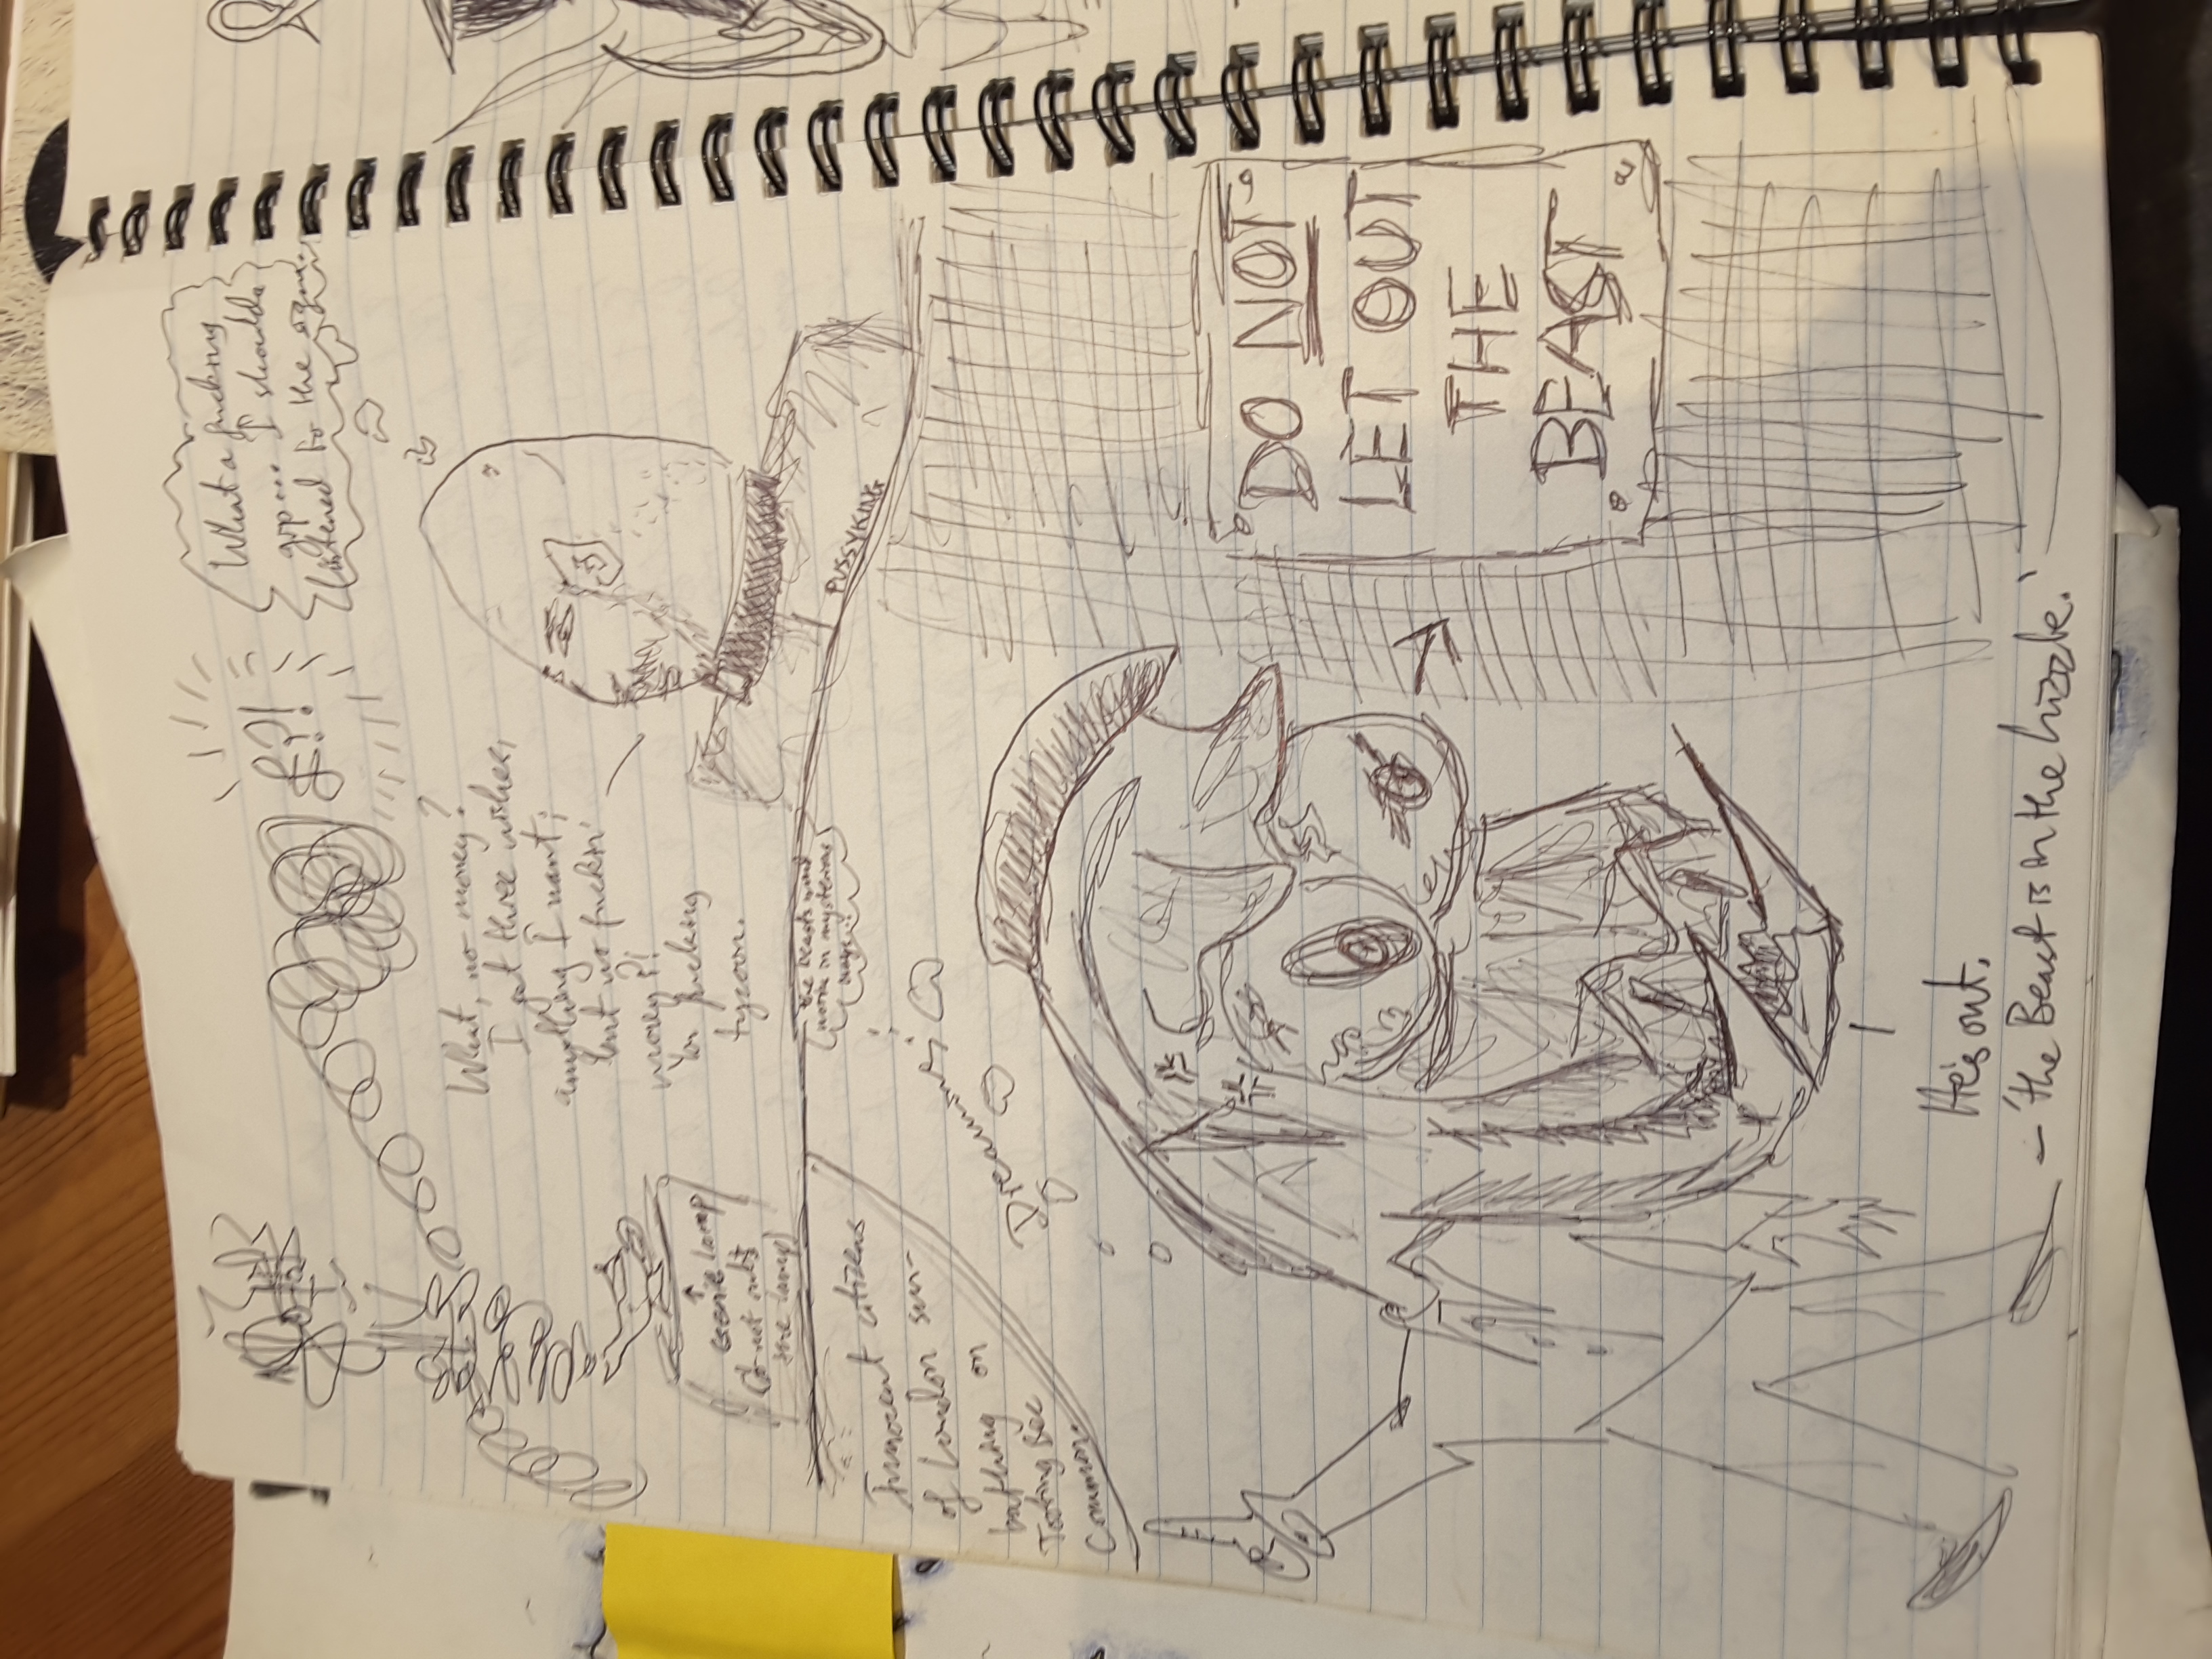 £?!
What a fucking
gyp... I shoulda
listened to the sign..
What, no money?
I get three wishes,
anything I want;
but no fuckin'
money?!
You fucking
tycoon.
Genie lamp
(do not rub
the lamp)
PUSSYKING
the beasts mind
works in mysterious
ways...
Innocent citizens
of London sun-
bathing on
Tooting Bec
Common.
Dreaming
DO NOT
LET OUT
THE
BEAST
He's out.
- 'the Beast is in the hizzle.'